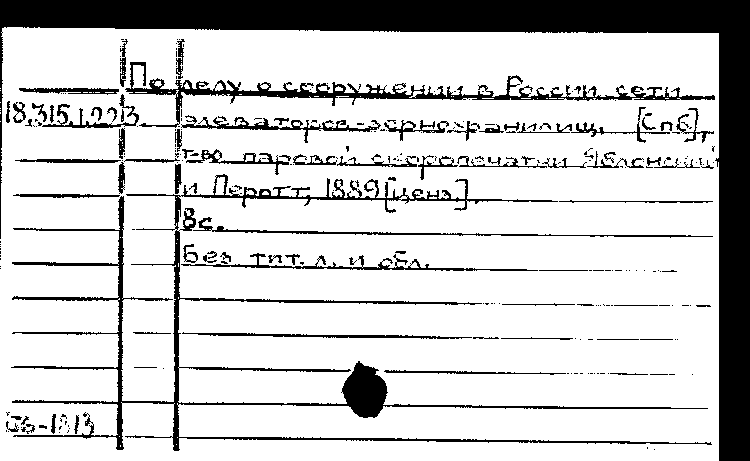 По делу о сооружении в России сети
18.315.1.223. элеваторов-зернохранилищ. [Спб],
т-во паровой скоропечатни Яблонский
и Перотт, 1889 [ценз.].
8с.
Без тит. л. и обл.